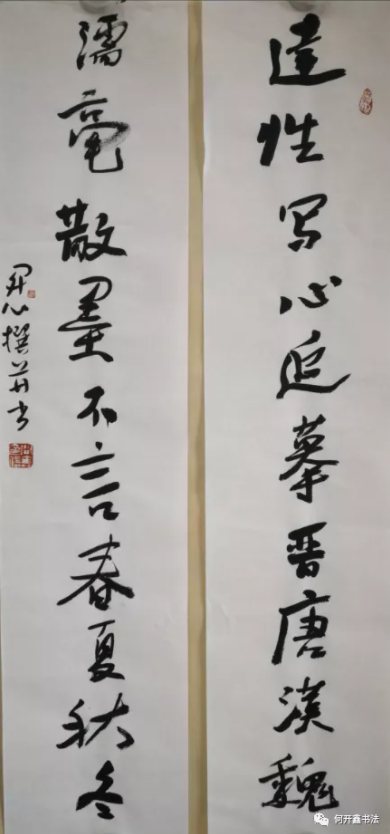 达性写心追摹晋唐汉魏
濡毫散墨不言春夏秋冬
开心撰并书
何开鑫书法